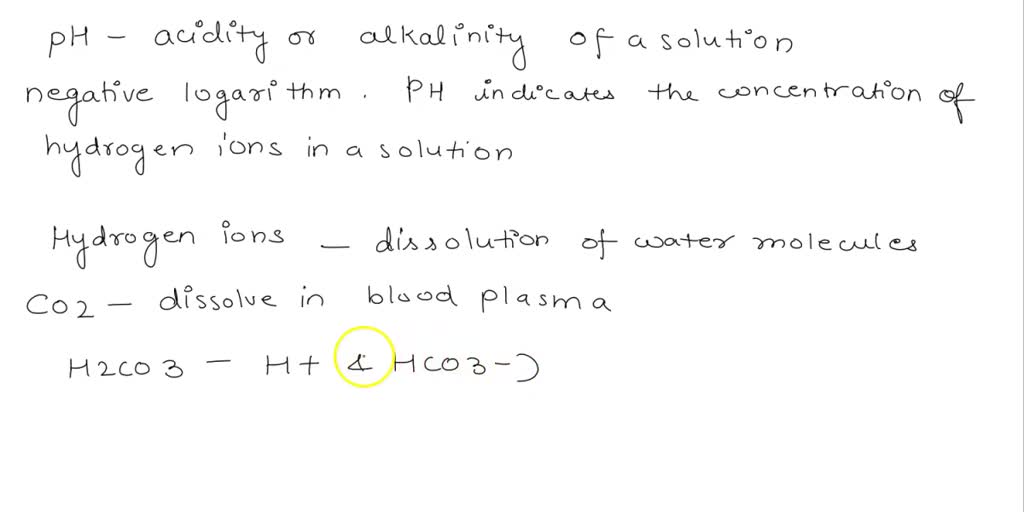 pH - acidity or alkalinity of a solution
negative logarithm. PH indicates the concentration of
hydrogen ions in a solution
Hydrogen ions - dissolution of water molecules
CO2 - dissolve in blood plasma
H2CO3 - H+ & HCO3-)